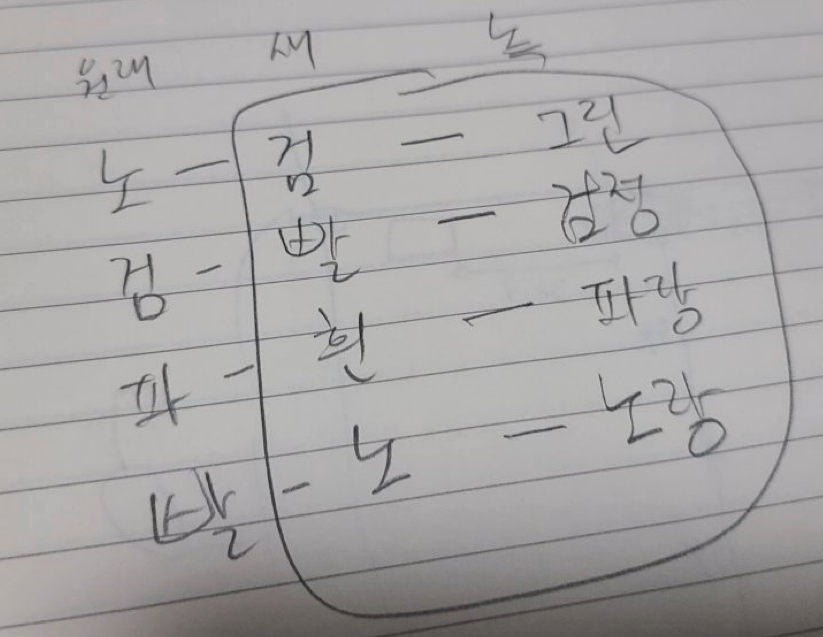 원래 새 녹
노 - 검 - 그린
검 - 빨 - 검정
파 - 흰 - 파랑
빨 - 노 - 노랑